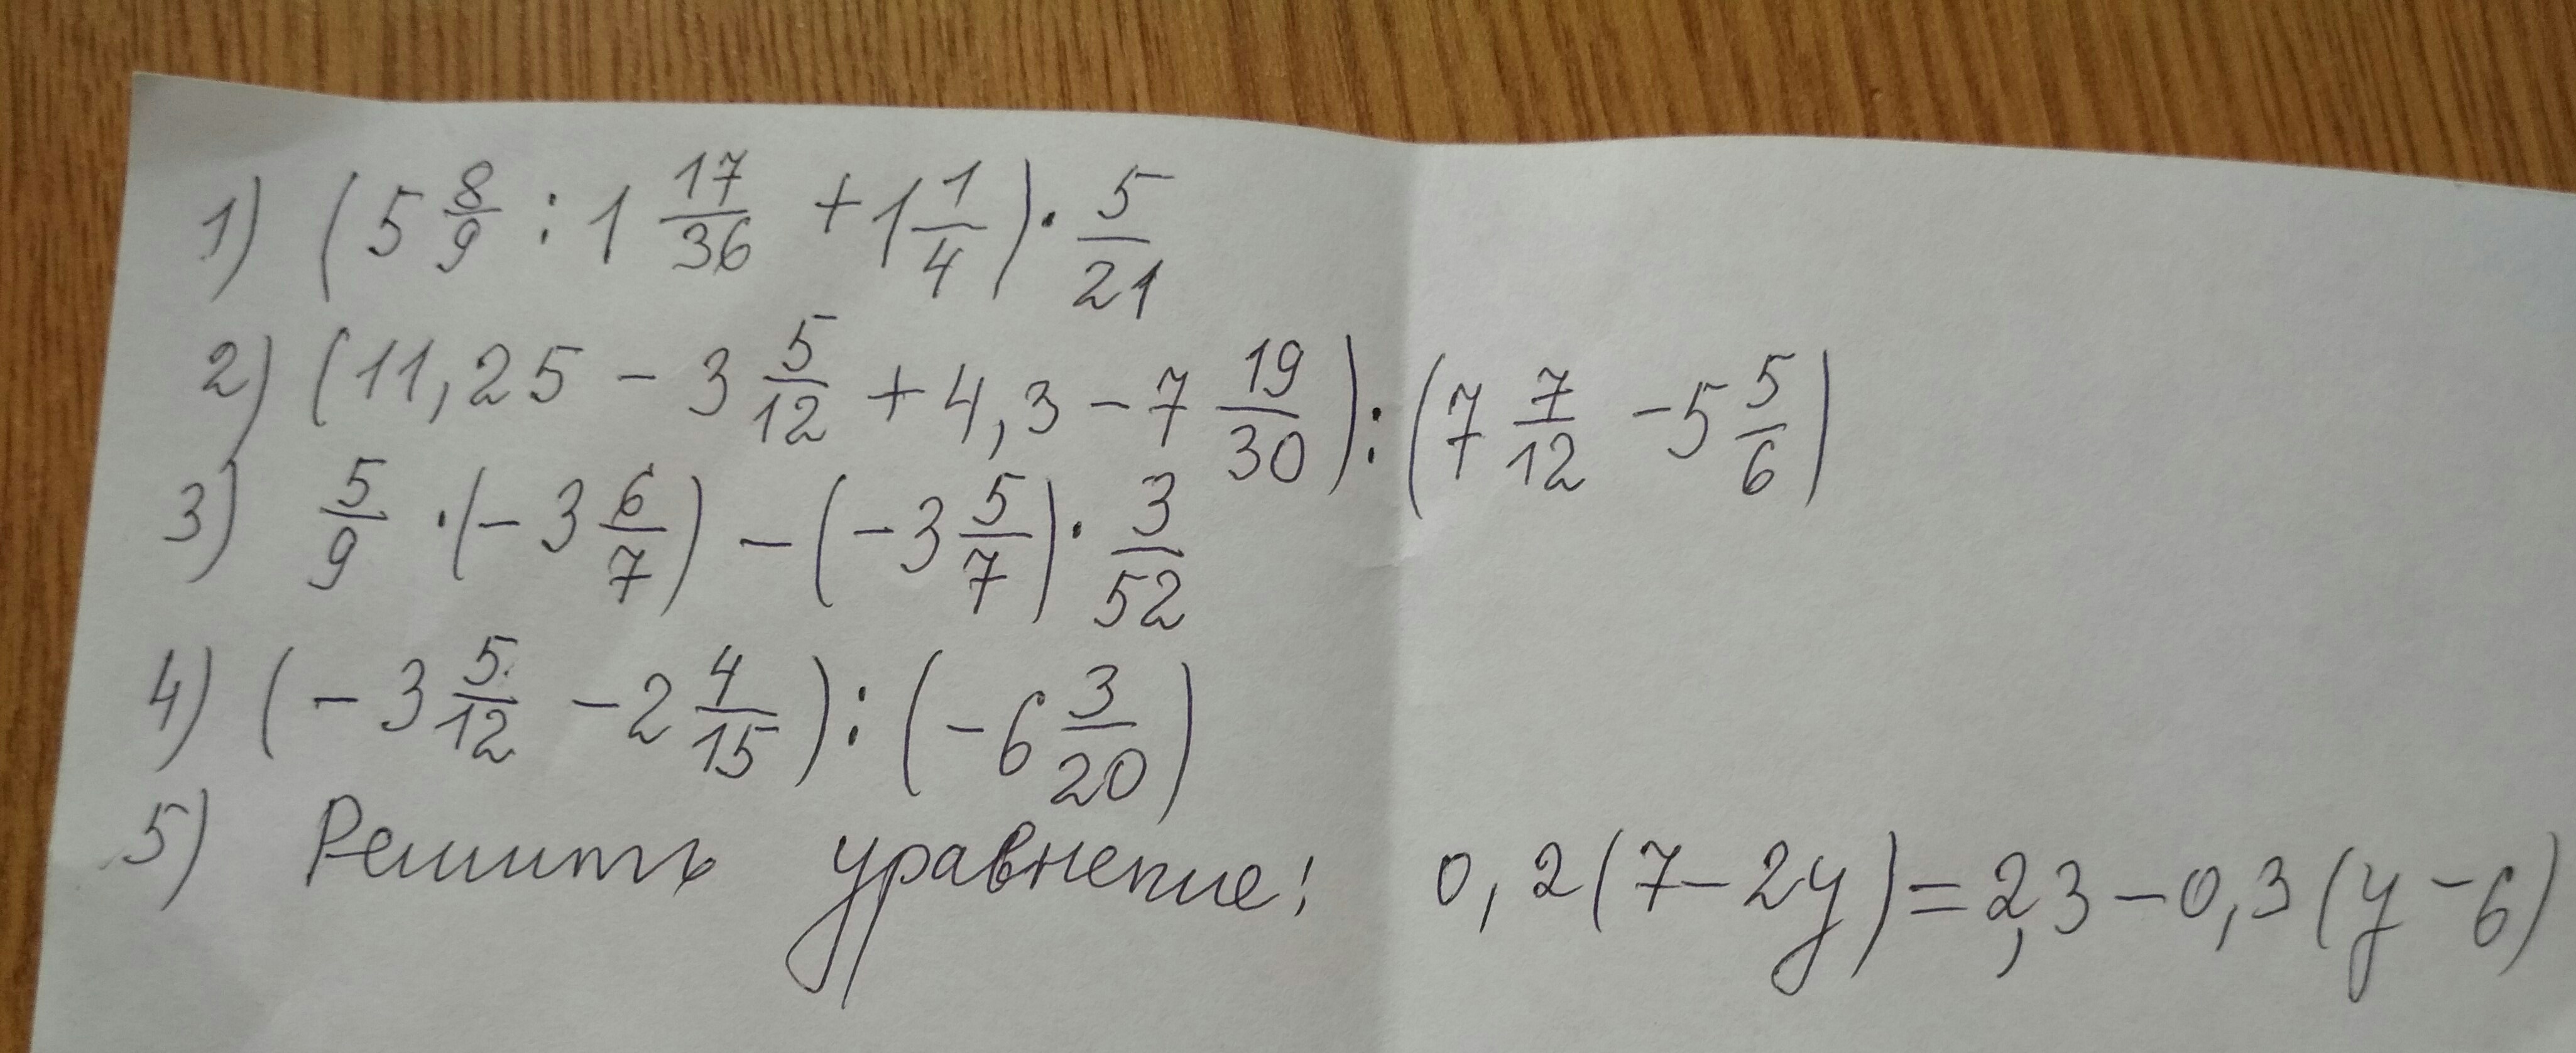 1) (5 8/9 : 1 17/36 + 1 1/4) · 5/21
2) (11,25 - 3 5/12 + 4,3 - 7 19/30) : (7 7/12 - 5 5/6)
3) 5/9 · (- 3 6/7) - (- 3 5/7) · 3/52
4) (- 3 5/12 - 2 4/15) : (- 6 3/20)
5) Решить уравнение: 0,2(7-2y)=2,3-0,3(y-6)